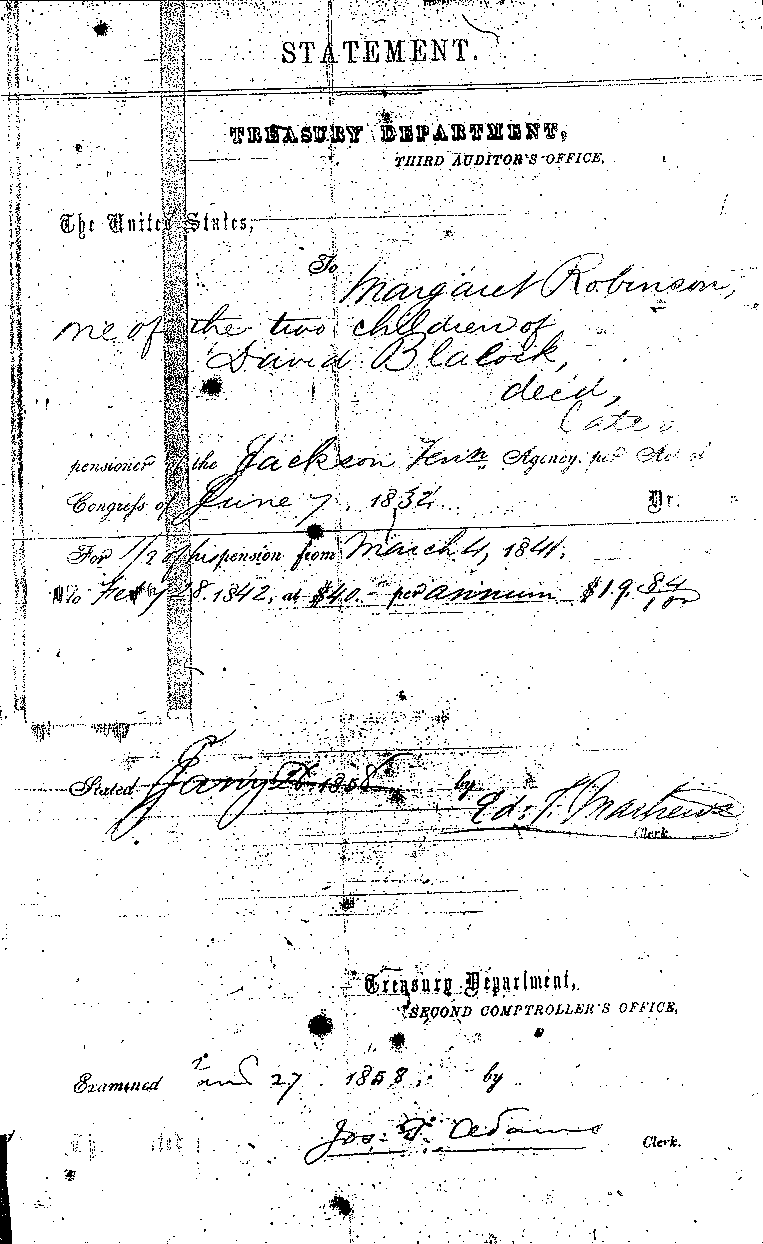 STATEMENT.
TREASURY DEPARTMENT,
THIRD AUDITOR'S OFFICE,
The United States,
To Margaret Robinson,
one of the two children of
David Blalock,
dec'd,
late a
pensioner of the Jackson Tenn Agency, per Act of
Congress of June 7, 1832. Dr.
For 1/2 of his pension from March 4, 1841.
to Feb'y 28. 1842, at $40.- per annum $19.84/100
Stated Jany 26. 1858 by
Ed: T. Mathews
Clerk.
Treasury Department,
SECOND COMPTROLLER'S OFFICE,
Examined 27 1858, by
Jos: T. Adams Clerk.